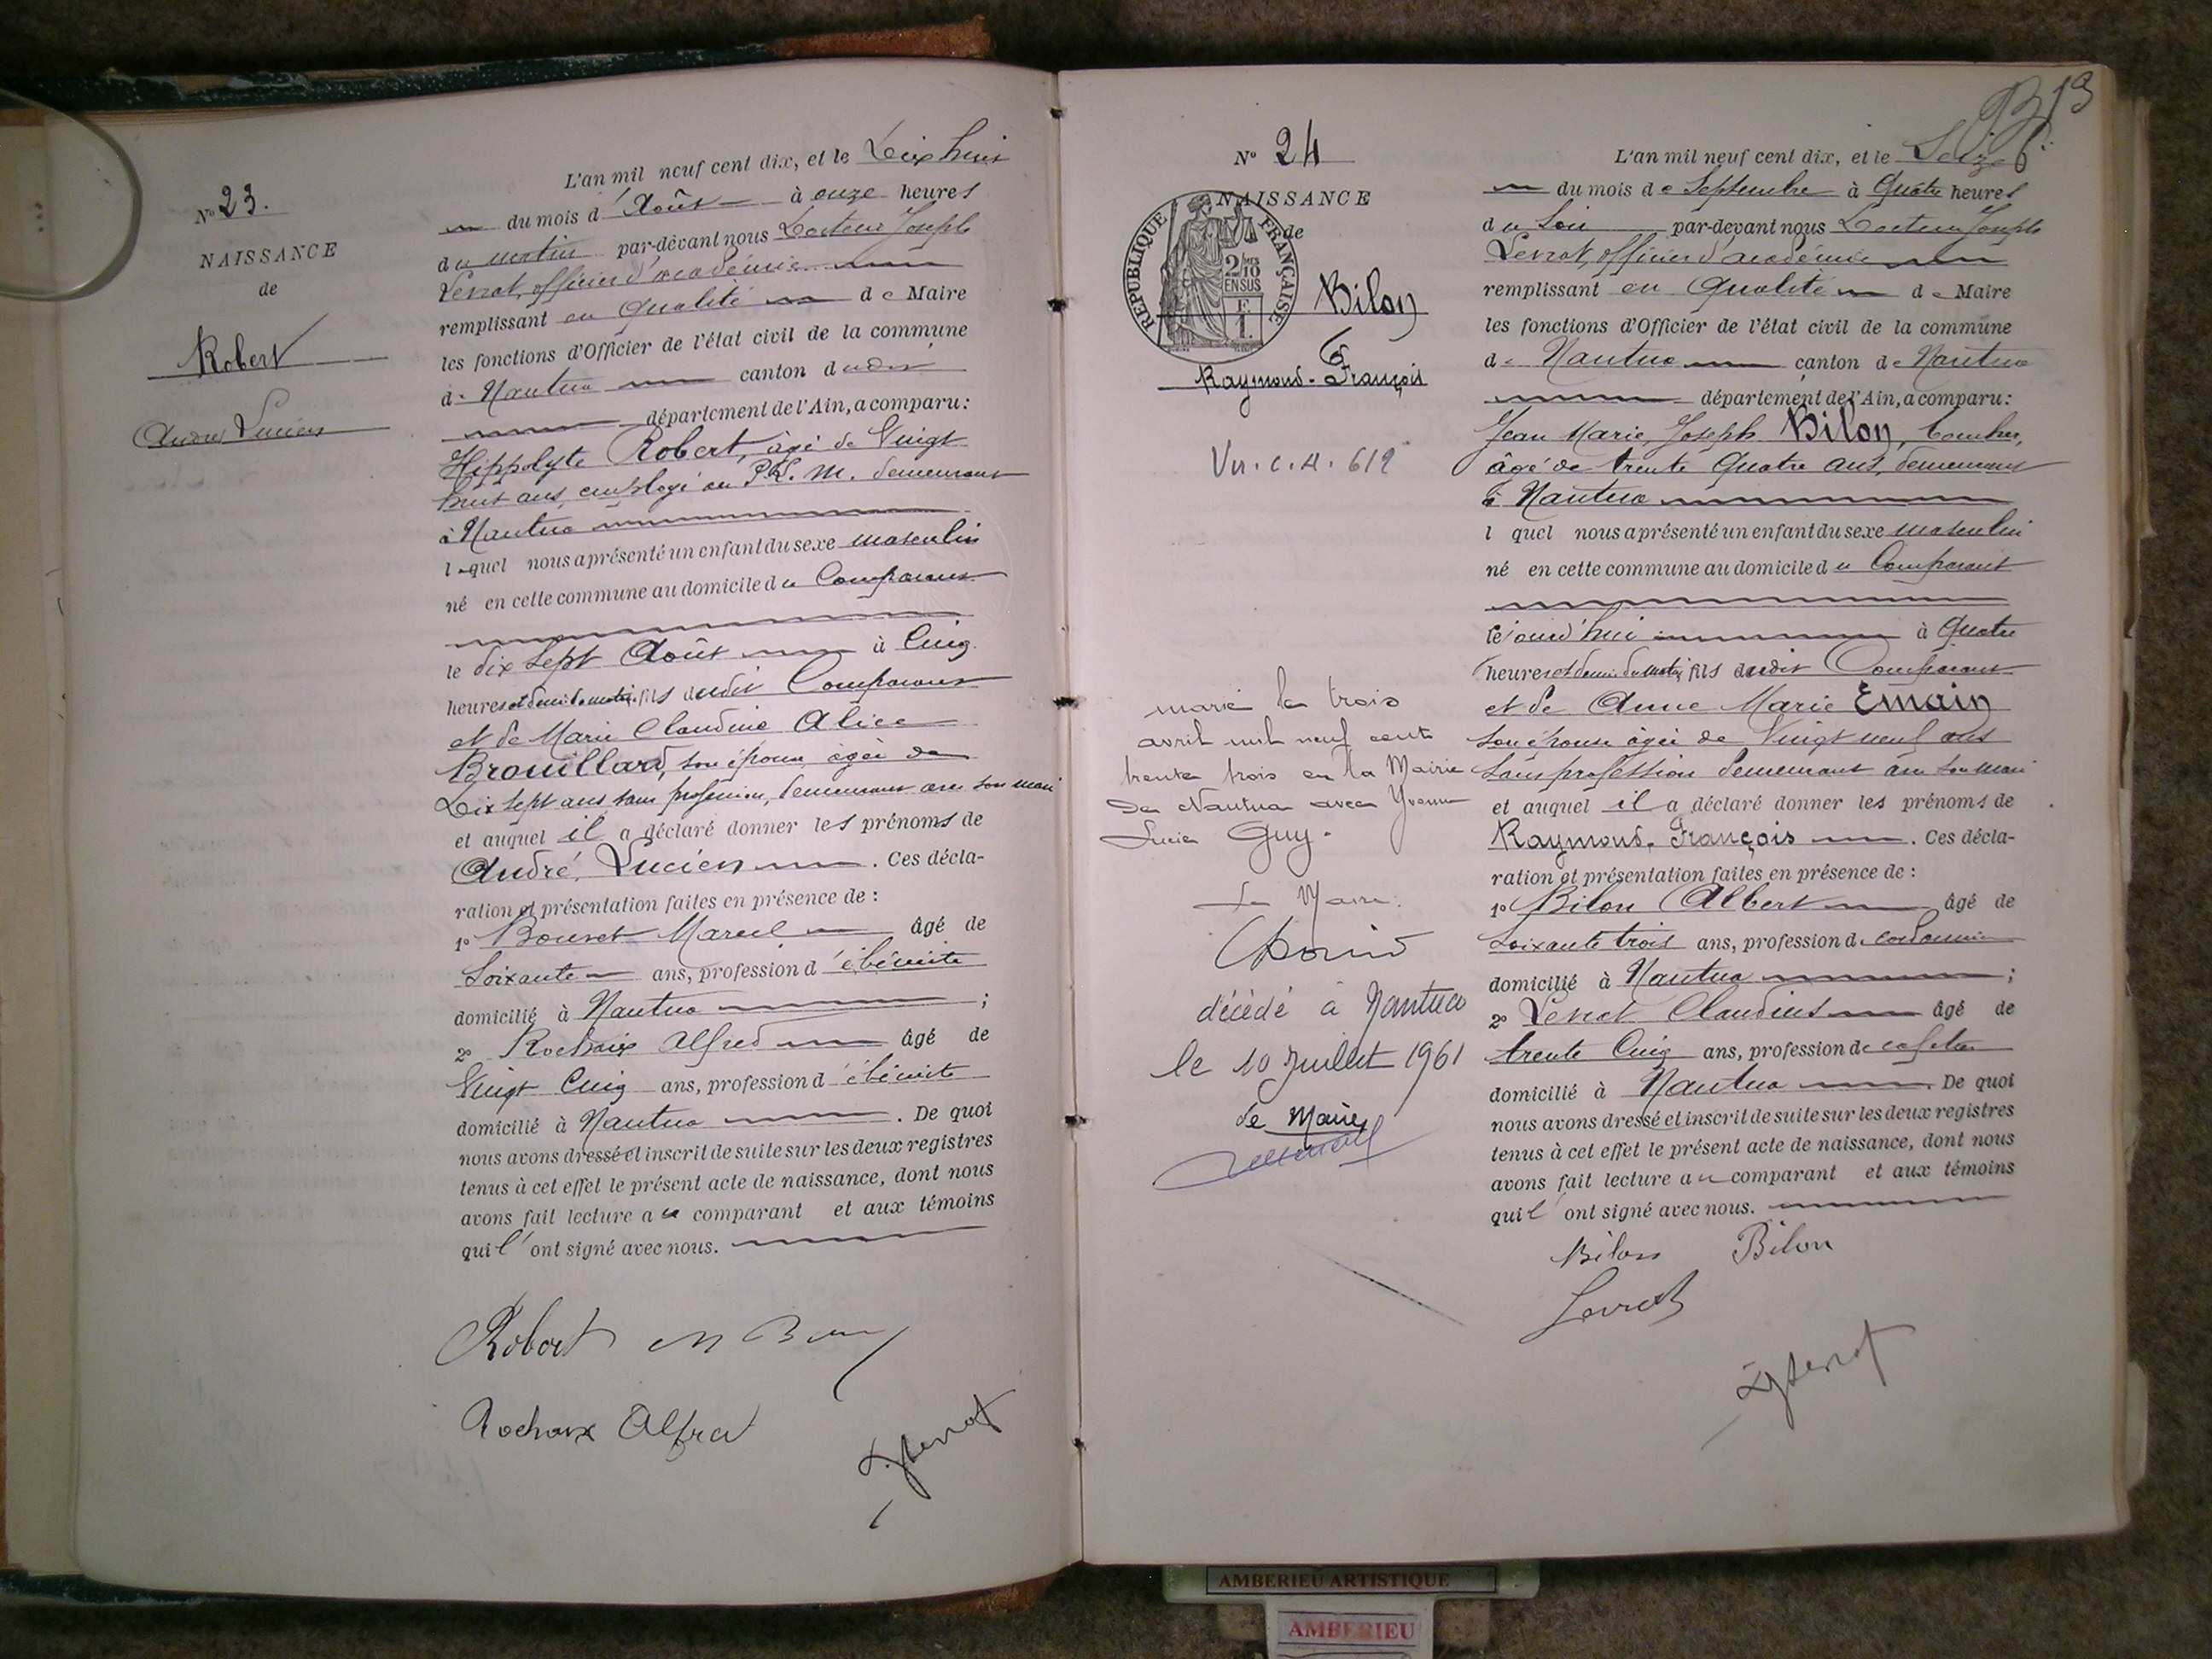 N° 23.
NAISSANCE
de
Robert
André Lucien
L'an mil neuf cent dix, et le Dix huit
du mois d'Août à onze heures
du matin par-devant nous Docteur Joseph
officier d'académie
remplissant en qualité de Maire
les fonctions d'Officier de l'état civil de la commune
de Nantua canton dudit
département de l'Ain, a comparu:
Hippolyte Robert, âgé de Vingt
huit ans, employé au P.L.M. demeurant
à Nantua
lequel nous a présenté un enfant du sexe masculin
né en cette commune au domicile du Comparant
le dix sept Août à Cinq
heures et demi du matin, fils dudit Comparant
et de Marie Claudine Alice
Brouillard, son épouse âgée de
Dix sept ans sans profession, demeurant avec son mari
et auquel il a déclaré donner les prénoms de
André, Lucien. Ces décla-
ration et présentation faites en présence de :
1° Bouvet Marcel âgé de
Soixante ans, profession d'ébéniste
domicilié à Nantua ;
2° Rochaix Alfred âgé de
Vingt Cinq ans, profession d'ébéniste
domicilié à Nantua . De quoi
nous avons dressé et inscrit de suite sur les deux registres
tenus à cet effet le présent acte de naissance, dont nous
avons fait lecture au comparant et aux témoins
qui l'ont signé avec nous.
Robert
Rochaix Alfred
13
N° 24
NAISSANCE
de
RÉPUBLIQUE FRANÇAISE
2/10
EN SUS
Bilon
Raymond-François
619
marié le trois
avril mil neuf cent
trente trois en la Mairie
de Nantua avec Yvonne
Lucie Guy.
Le Maire.
décédé à Nantua
le 10 Juillet 1961
Le Maire
L'an mil neuf cent dix, et le Seize
du mois de Septembre à Quatre heures
du Soir par-devant nous Docteur Joseph
officier d'académie
remplissant en Qualité de Maire
les fonctions d'Officier de l'état civil de la commune
de Nantua canton de Nantua
département de l'Ain, a comparu:
Jean Marie, Joseph Bilon,
âgé de trente Quatre ans, demeurant
à Nantua
l quel nous a présenté un enfant du sexe masculin
né en cette commune au domicile du Comparant
cejourd'hui à Quatre
heures et demi du matin, fils dudit Comparant
et de Anne Marie Emain
son épouse âgée de Vingt neuf ans
sans profession demeurant avec son mari
et auquel il a déclaré donner les prénoms de
Raymond, François. Ces décla-
ration et présentation faites en présence de :
1° Bilon Albert âgé de
Soixante trois ans, profession de cordonnier
domicilié à Nantua ;
2° Claudius âgé de
trente Cinq ans, profession de cafetier
domicilié à Nantua . De quoi
nous avons dressé et inscrit de suite sur les deux registres
tenus à cet effet le présent acte de naissance, dont nous
avons fait lecture au comparant et aux témoins
qui l'ont signé avec nous.
Bilon Bilon
AMBERIEU ARTISTIQUE
AMBERIEU